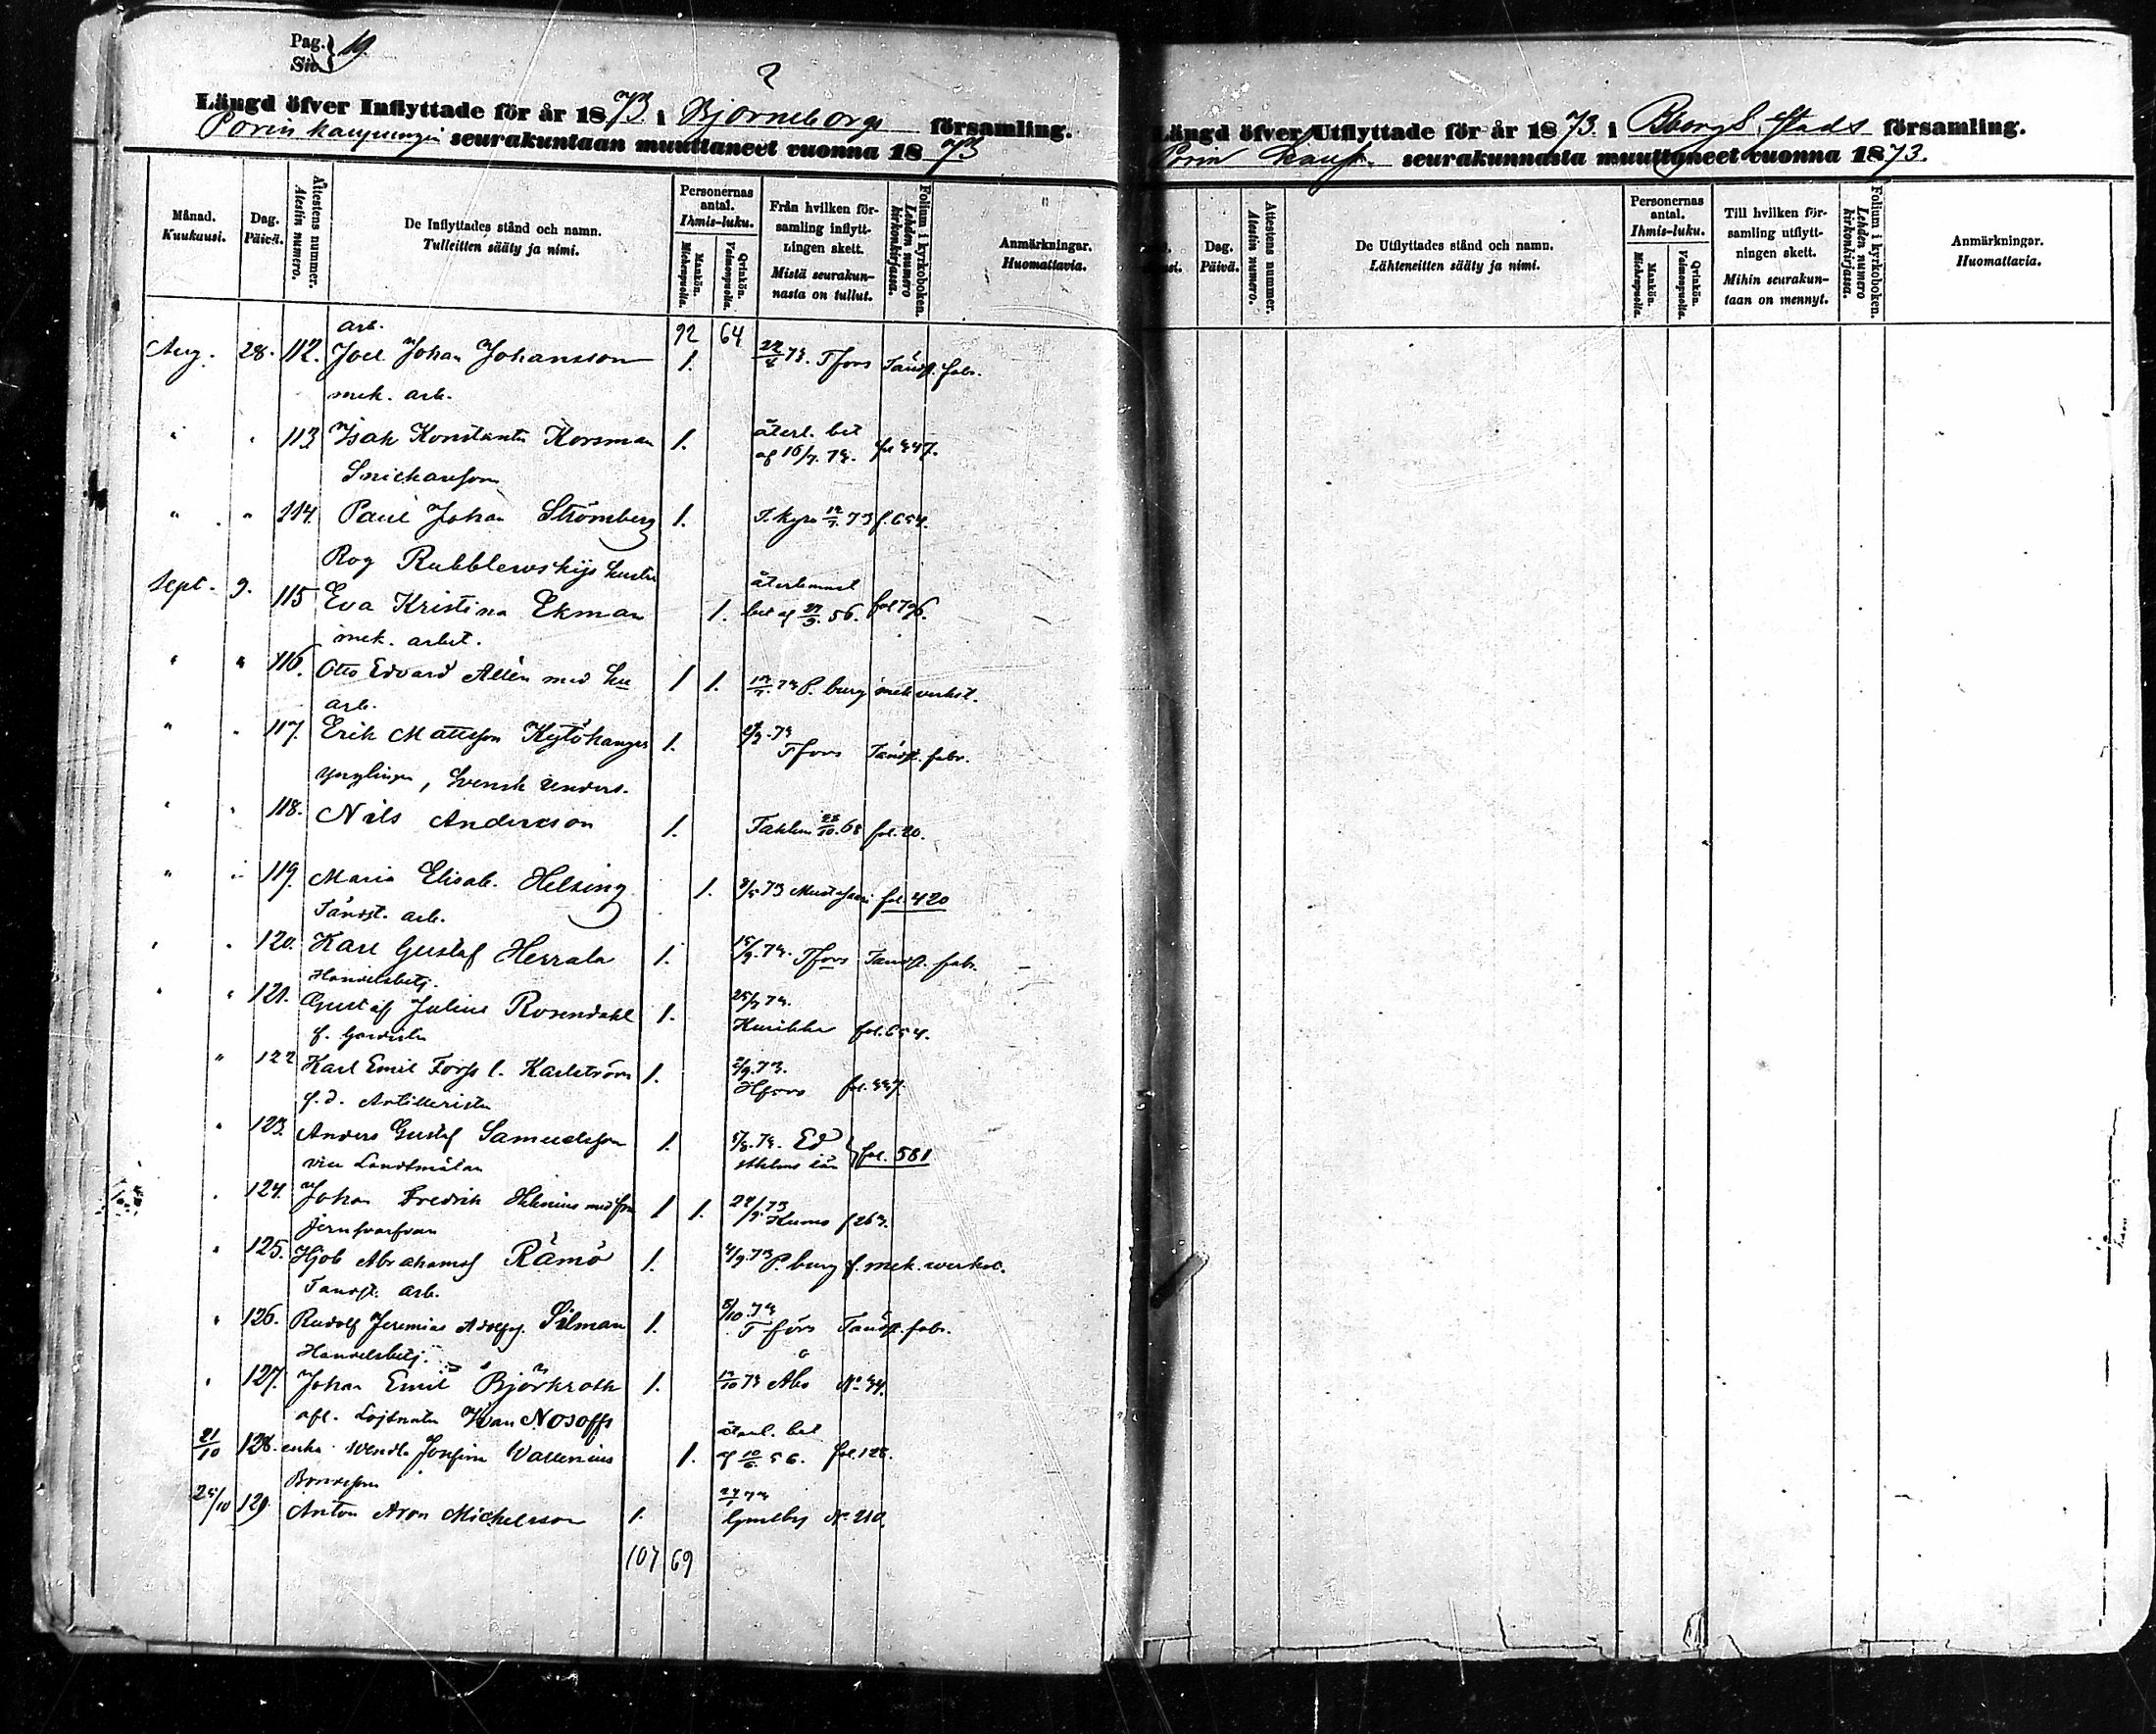 Pag. } 19.
Siv.
Längd öfver Inflyttade för år 1873 i Björneborgs församling.
Porin kaupungin seurakuntaan muuttaneet vuonna 1873
Månad. Kuukausi.
Dag. Päivä.
Attestens nummer. Atestin numero.
De Inflyttades stånd och namn. Tulleitten sääty ja nimi.
Personernas antal. Ihmis-luku.
Mankön. Miehenpuolia.
Qvinkön. Vaimonpuolia.
Från hvilken församling inflyttningen skett. Mistä seurakunnasta on tullut.
Folium i kyrkoboken. Lehden numero kirkonkirjassa.
Anmärkningar. Huomattavia.
92 64
arb.
Aug. 28. 112. Joel Johan Johansson 1. Tfors Tändst. fabr.
mek. arb.
" " 113 Isak Konstantin Korsman 1. återl. bet af 16/7. 73. fol 447.
Snickareson
" " 114. Paul Johan Strömberg 1. T. kyro 73 f. 654.
Rog Rubblewskijs hustru
Sept. 9. 115 Eva Kristina Ekman 1. återkommit bet af 56. fol 796.
mek. arbet.
" " 116. Otto Edvard Allén med hu 1 1. 73 P. burg mek verkst.
arb.
" " 117. Erik Mattsson Kytöhangas 1. 73 Tfors Tändst. fabr.
ynglingen, Svensk unders.
" " 118. Nils Anderson 1. 68 fol. 20.
" " 119. Maria Elisab. Helsing 1. 73 Mustasaari fol. 420
Tändst. arb.
" " 120. Karl Gustaf Herrala 1. 15/9. 73. Tfors Tändst. fabr.
Handelsbetj.
" " 121. Gustaf Julius Rosendahl 1. 73. Kurikka fol. 654.
f. Gardisten
" 122 Karl Emil Forss l. Karlström 1. 73. Hfors fol. 447.
f.d. Artilleristen
" 123. Anders Gustaf Samuelsson 1. 73. Ed Sthlms län } fol. 581
vice Landtmätaren
" 124. Johan Fredrik Helenius med fru 1 1. 73 Kumo f 263.
jernsvarfvaren
" 125. Hjob Abrahamss Rämö 1. 4/9. 73 P. burg f. mek. werkst.
Tändst. arb.
" 126. Rudolf Jeremias Adolfss. Silman 1. 5/10. 73 Tfors Tändst. fabr.
Handelsbetj.
" 127. Johan Emil Björkroth 1. 73 Åbo No 44.
afl. Löjtnanten Ivan Nosoffs
21/10 128. enka Wendla Josefina Wallenius 1. återl. bet af 56. fol. 128.
Bondeson
25/10 129 Anton Aron Michelsson 1. 73 No 210.
107 69
Längd öfver Utflyttade för år 1873. i Bborgs Stads församling.
Porin kaup. seurakunnasta muuttaneet vuonna 1873.
Dag. Päivä.
Attestens nummer. Atestin numero.
De Utflyttades stånd och namn. Lähteneitten sääty ja nimi.
Personernas antal. Ihmis-luku.
Mankön. Miehenpuolia.
Qvinkön. Vaimonpuolia.
Till hvilken församling utflyttningen skett. Mihin seurakuntaan on mennyt.
Folium i kyrkoboken. Lehden numero kirkonkirjassa.
Anmärkningar. Huomattavia.